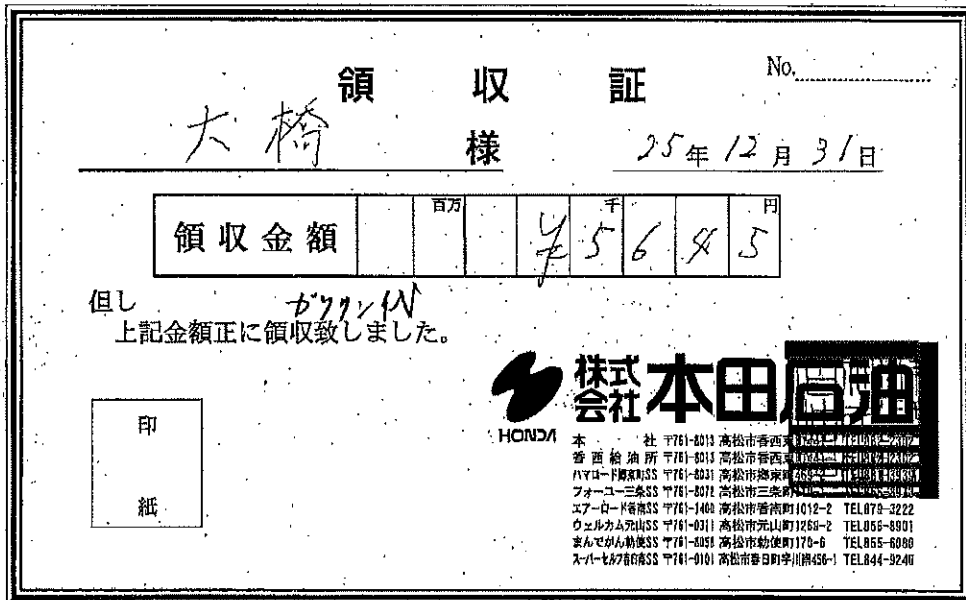 領収証
No.
大橋 様
25年12月31日
領収金額 百万 千 円
¥5645
但し ガソリン代
上記金額正に領収致しました。
印
紙
HONDA
株式会社 本田石油
本社 〒761-8013 高松市香西
香西給油所 〒761-8013 高松市香西
ハマロード郷東町SS 〒761-8031 高松市郷東町
フォーユー三条SS 〒761-8072 高松市三条町
エアーロード香南SS 〒761-1400 高松市香南町1012-2 TEL879-3222
ウェルカム元山SS 〒761-0311 高松市元山町1268-2 TEL866-8901
まんでがん勅使SS 〒761-8058 高松市勅使町170-6 TEL865-6080
スーパーセルフ春日南SS 〒761-0101 高松市春日町字川南456-1 TEL844-9240